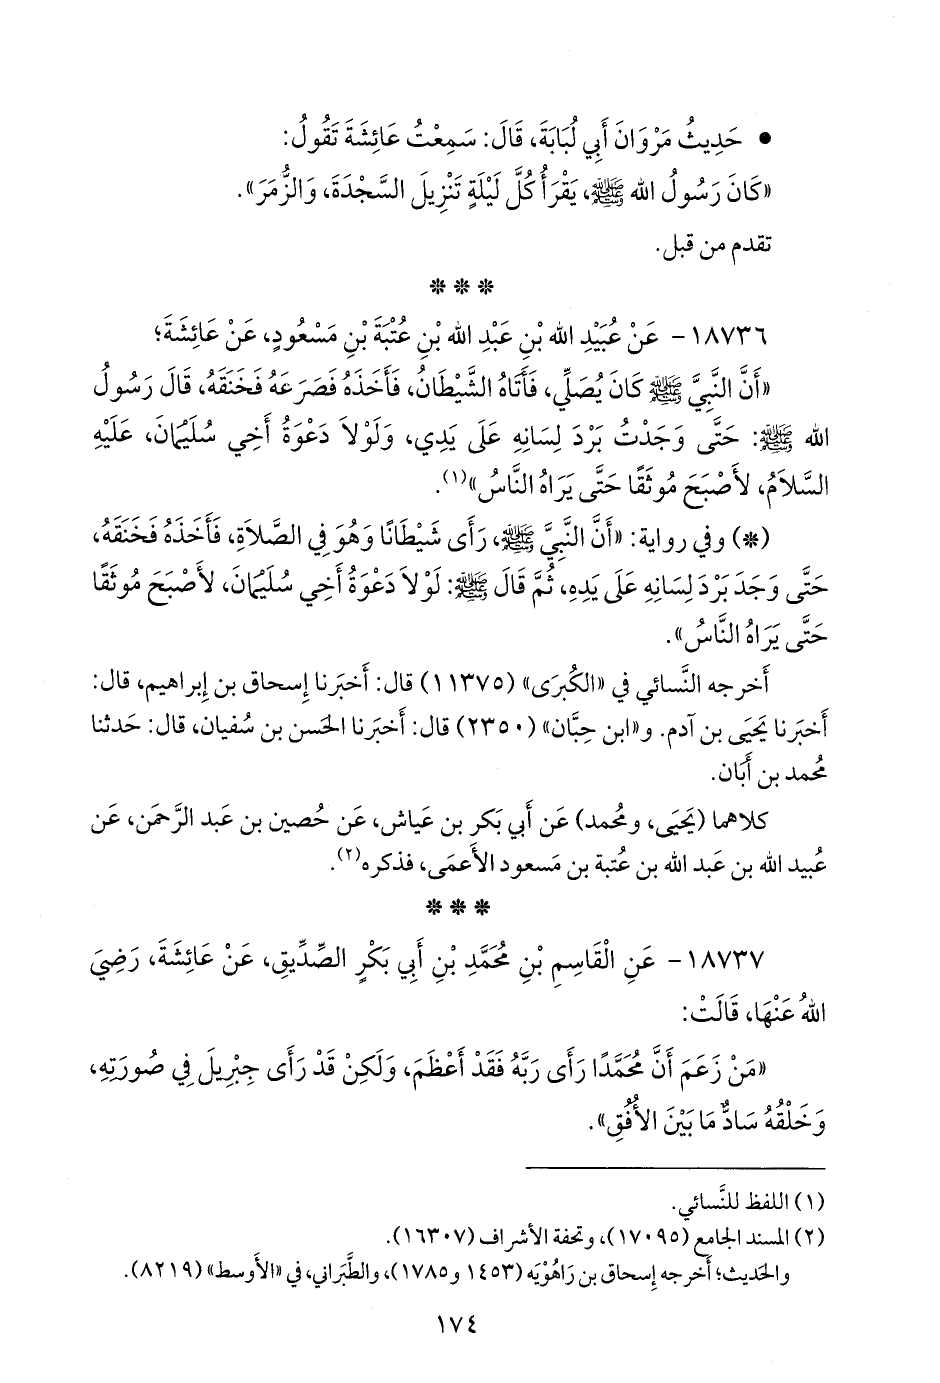 • حَدِيثُ مَرْوَانَ أَبِي لُبَابَةَ، قَالَ: سَمِعْتُ عَائِشَةَ تَقُولُ:
«كَانَ رَسُولُ الله ﷺ، يَقْرَأُ كُلَّ لَيْلَةٍ تَنْزِيلَ السَّجْدَةَ، وَالزُّمَرَ».
تقدم من قبل.
❋ ❋ ❋
١٨٧٣٦- عَنْ عُبَيْدِ الله بْنِ عَبْدِ الله بْنِ عُتْبَةَ بْنِ مَسْعُودٍ، عَنْ عَائِشَةَ؛
«أَنَّ النَّبِيَّ ﷺ كَانَ يُصَلِّي، فَأَتَاهُ الشَّيْطَانُ، فَأَخَذَهُ فَصَرَعَهُ فَخَنَقَهُ، قَالَ رَسُولُ
الله ﷺ: حَتَّى وَجَدْتُ بَرْدَ لِسَانِهِ عَلَى يَدِي، وَلَوْلاَ دَعْوَةُ أَخِي سُلَيْمَانَ، عَلَيْهِ
السَّلاَمُ، لأَصْبَحَ مُوثَقًا حَتَّى يَرَاهُ النَّاسُ»(١).
(❋) وفي رواية: «أَنَّ النَّبِيَّ ﷺ، رَأَى شَيْطَانًا وَهُوَ فِي الصَّلاَةِ، فَأَخَذَهُ فَخَنَقَهُ،
حَتَّى وَجَدَ بَرْدَ لِسَانِهِ عَلَى يَدِهِ، ثُمَّ قَالَ ﷺ: لَوْلاَ دَعْوَةُ أَخِي سُلَيْمَانَ، لأَصْبَحَ مُوثَقًا
حَتَّى يَرَاهُ النَّاسُ».
أَخرجه النَّسائي في «الكُبرَى» (١١٣٧٥) قال: أَخبَرنا إِسحاق بن إِبراهيم، قال:
أَخبَرنا يَحيَى بن آدم. و«ابن حِبَّان» (٢٣٥٠) قال: أَخبَرنا الحَسن بن سُفيان، قال: حَدثنا
مُحمد بن أَبَان.
كلاهما (يَحيَى، ومُحمد) عَن أَبي بَكر بن عَياش، عَن حُصين بن عَبد الرَّحمَن، عَن
عُبيد الله بن عَبد الله بن عُتبة بن مَسعود الأَعمَى، فذكره(٢).
❋ ❋ ❋
١٨٧٣٧- عَنِ الْقَاسِمِ بْنِ مُحَمَّدِ بْنِ أَبِي بَكْرٍ الصِّدِّيقِ، عَنْ عَائِشَةَ، رَضِيَ
اللهُ عَنْهَا، قَالَتْ:
«مَنْ زَعَمَ أَنَّ مُحَمَّدًا رَأَى رَبَّهُ فَقَدْ أَعْظَمَ، وَلَكِنْ قَدْ رَأَى جِبْرِيلَ فِي صُورَتِهِ،
وَخَلْقُهُ سَادٌّ مَا بَيْنَ الأُفُقِ».
(١) اللفظ للنَّسائي.
(٢) المسند الجامع (١٧٠٩٥)، وتحفة الأشراف (١٦٣٠٧).
والحَديث؛ أَخرجه إِسحاق بن رَاهُوْيَه (١٤٥٣ و١٧٨٥)، والطَّبَراني، في «الأَوسط» (٨٢١٩).
١٧٤